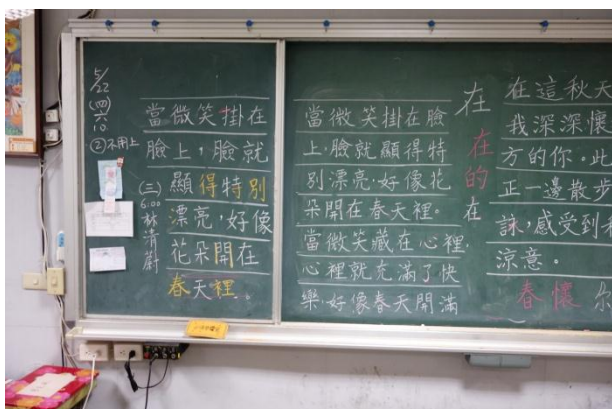 5/22
(四)
六
10
②不用上
(三)
6:00
林
清
蔚
當微笑掛在
臉上，臉就
顯得特別
漂亮，好像
花朵開在
春天裡
當微笑掛在臉
上，臉就顯得特
別漂亮，好像花
朵開在春天裡。
當微笑藏在心裡，
心裡就充滿了快
樂，好像春天開滿
在
在
的
在
在這秋天
我深深懷
方的你。此
正一邊散步
詠，感受到
涼意。
春懷